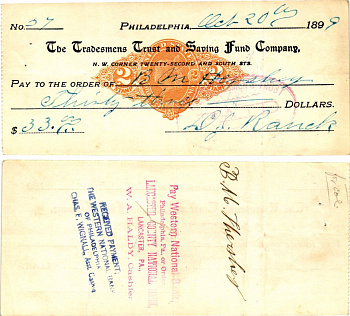 No 37 PHILADELPHIA, Oct 20th 1899
The Tradesmens Trust and Saving Fund Company,
N. W. CORNER TWENTY-SECOND AND SOUTH STS.
PAY TO THE ORDER OF B M Hershey
Thirty three DOLLARS.
$ 33.00 D. S. Ranck
RECEIVED PAYMENT,
THE WESTERN NATIONAL BANK
OF PHILADELPHIA
CHAS. F. WIGNALL, Asst. Cashier
Pay Western National Bank,
Philadelphia, Pa. or Order,
LANCASTER COUNTY NATIONAL BANK,
LANCASTER, PA.,
W. A. HALDY, Cashier.
B M Hershey